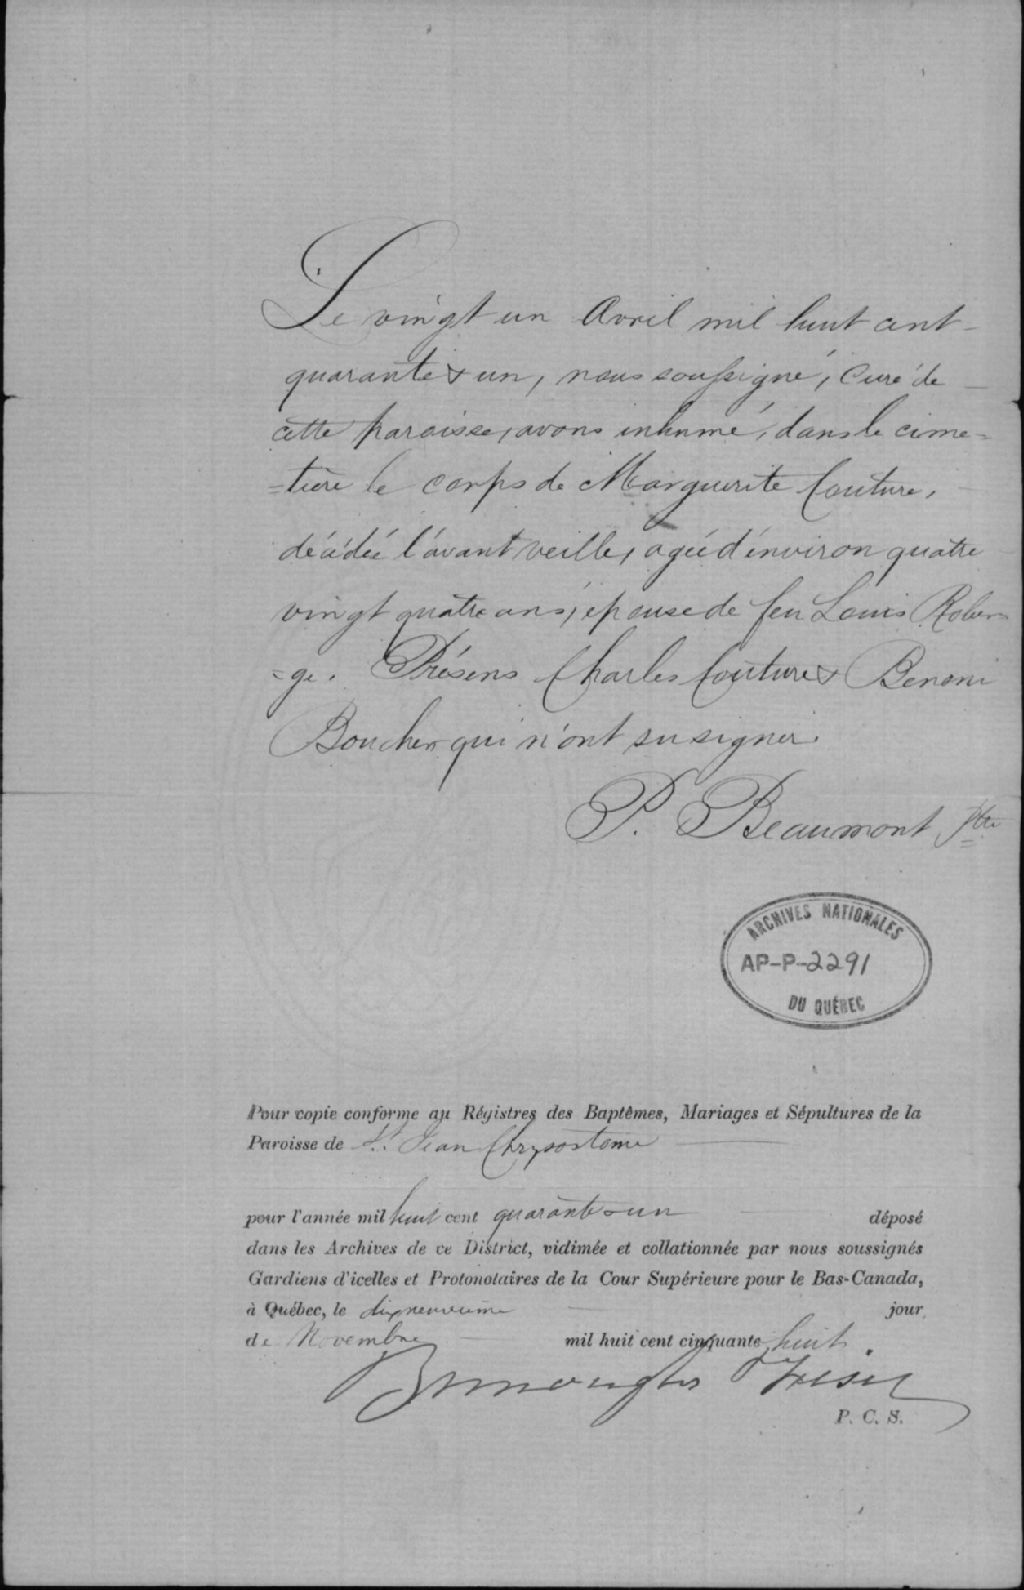 Le vingt un Avril mil huit cent-
quarante & un, nous soussigné, Curé de
cette paroisse, avons inhumé, dans le cime=
=tière le corps de Marguerite Couture,
décédée l'avant veille, agée d'environ quatre
vingt quatre ans, épouse de feu Louis Rober
=ge. Présens Charles Couture & Benoni
Boucher qui n'ont su signer.
P. Beaumont Ptre
ARCHIVES NATIONALES
AP-P-2291
DU QUÉBEC
Pour copie conforme au Régistres des Baptêmes, Mariages et Sépultures de la
Paroisse de St. Jean Chrysostome
pour l'année mil huit cent quarante & un déposé
dans les Archives de ce District, vidimée et collationnée par nous soussignés
Gardiens d'icelles et Protonotaires de la Cour Supérieure pour le Bas-Canada,
à Québec, le dixneuvième jour
de Novembre mil huit cent cinquante huit.
P. C. S.